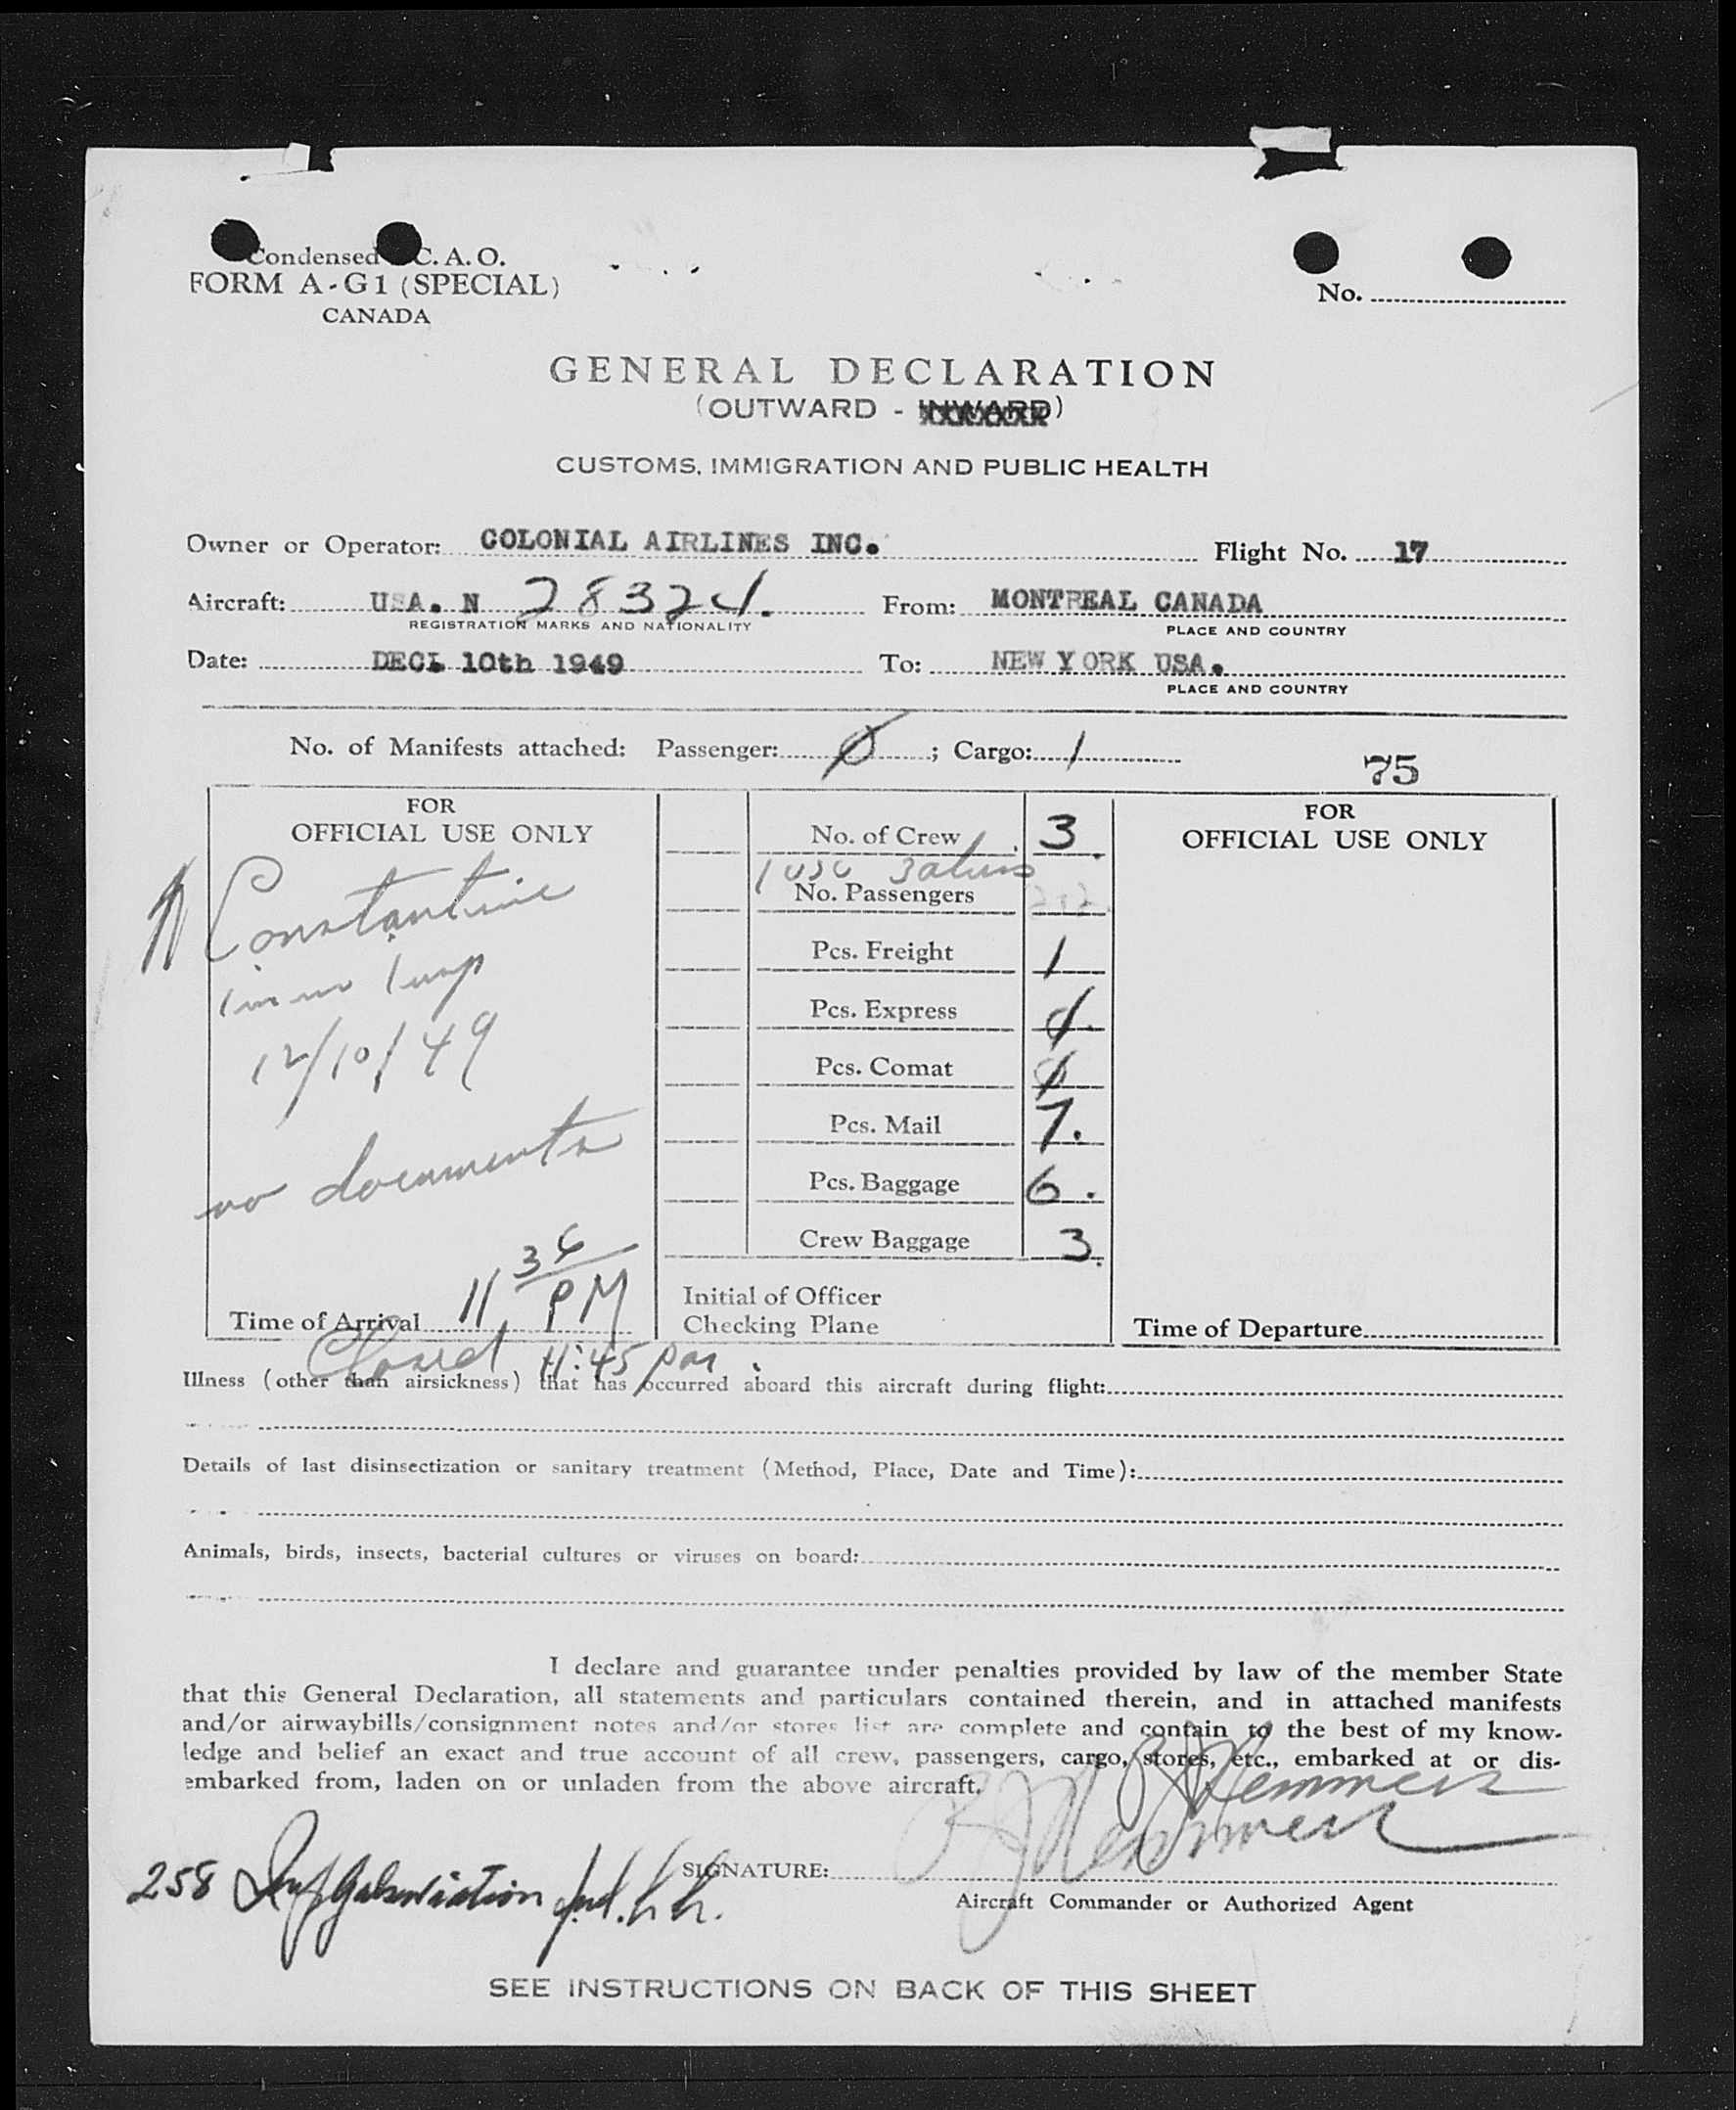 Condensed C. A. O.
FORM A-G1 (SPECIAL)
CANADA
No.
GENERAL DECLARATION
(OUTWARD - INWARD)
CUSTOMS, IMMIGRATION AND PUBLIC HEALTH
Owner or Operator: COLONIAL AIRLINES INC. Flight No. 17
Aircraft: USA. N 28324. From: MONTREAL CANADA
REGISTRATION MARKS AND NATIONALITY PLACE AND COUNTRY
Date: DEC. 10th 1949 To: NEW YORK USA.
PLACE AND COUNTRY
No. of Manifests attached: Passenger: 0; Cargo: 1
75
FOR
OFFICIAL USE ONLY
Constantine
Imm Insp
12/10/49
no documents
11 36 PM
Time of Arrival
Closed 11:45 pm
No. of Crew 3
1 USC 3 aliens
No. Passengers
Pcs. Freight 1
Pcs. Express
Pcs. Comat
Pcs. Mail 7.
Pcs. Baggage 6.
Crew Baggage 3.
Initial of Officer
Checking Plane
FOR
OFFICIAL USE ONLY
Time of Departure
Illness (other than airsickness) that has occurred aboard this aircraft during flight:
Details of last disinsectization or sanitary treatment (Method, Place, Date and Time):
Animals, birds, insects, bacterial cultures or viruses on board:
I declare and guarantee under penalties provided by law of the member State
that this General Declaration, all statements and particulars contained therein, and in attached manifests
and/or airwaybills/consignment notes and/or stores list are complete and contain to the best of my know-
ledge and belief an exact and true account of all crew, passengers, cargo, stores, etc., embarked at or dis-
embarked from, laden on or unladen from the above aircraft.
258
SIGNATURE:
Aircraft Commander or Authorized Agent
SEE INSTRUCTIONS ON BACK OF THIS SHEET